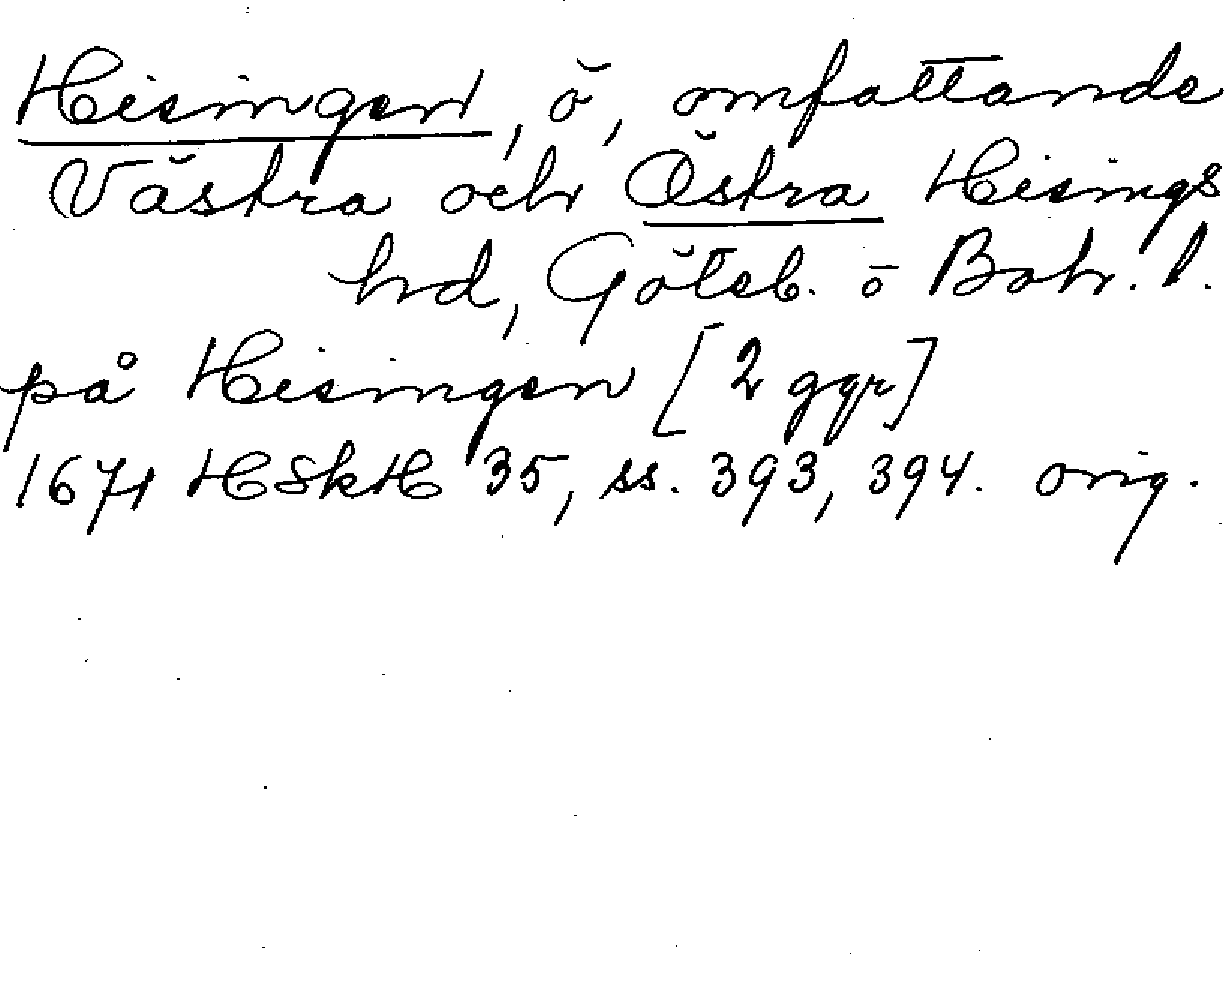 Hisingen, ö, omfattande
Västra och Östra Hisings
hd, Göteb. o Boh. l.
på Hisingen [2 ggr]
1671 HSkH 35, ss. 393, 394. orig.